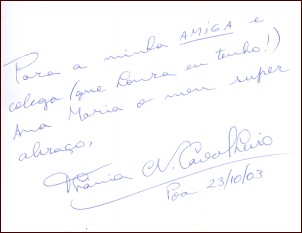 Para a minha AMIGA e
colega (que honra eu tenho!)
Ana Maria o meu super
abraço,
Vânia N. Carvalheiro
Poa 23/10/03